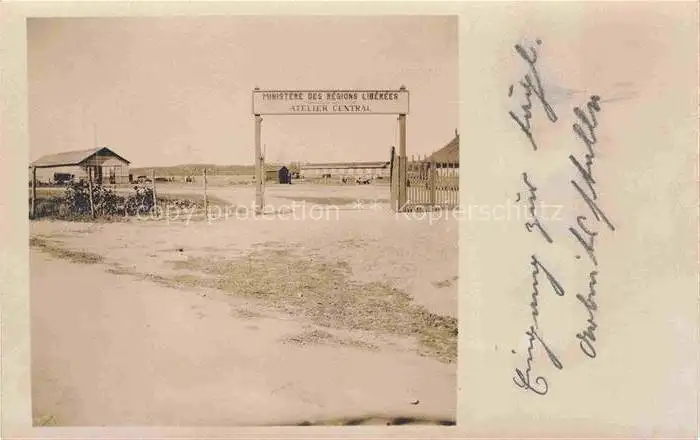 MINISTÈRE DES RÉGIONS LIBÉRÉES
ATELIER CENTRAL
copy protection * Kopierschutz
Eingang zur tägl.
Arbeitsstelle